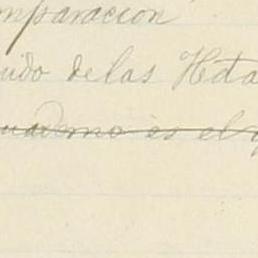 mparación
uido de las Hda
cuaderno es el q